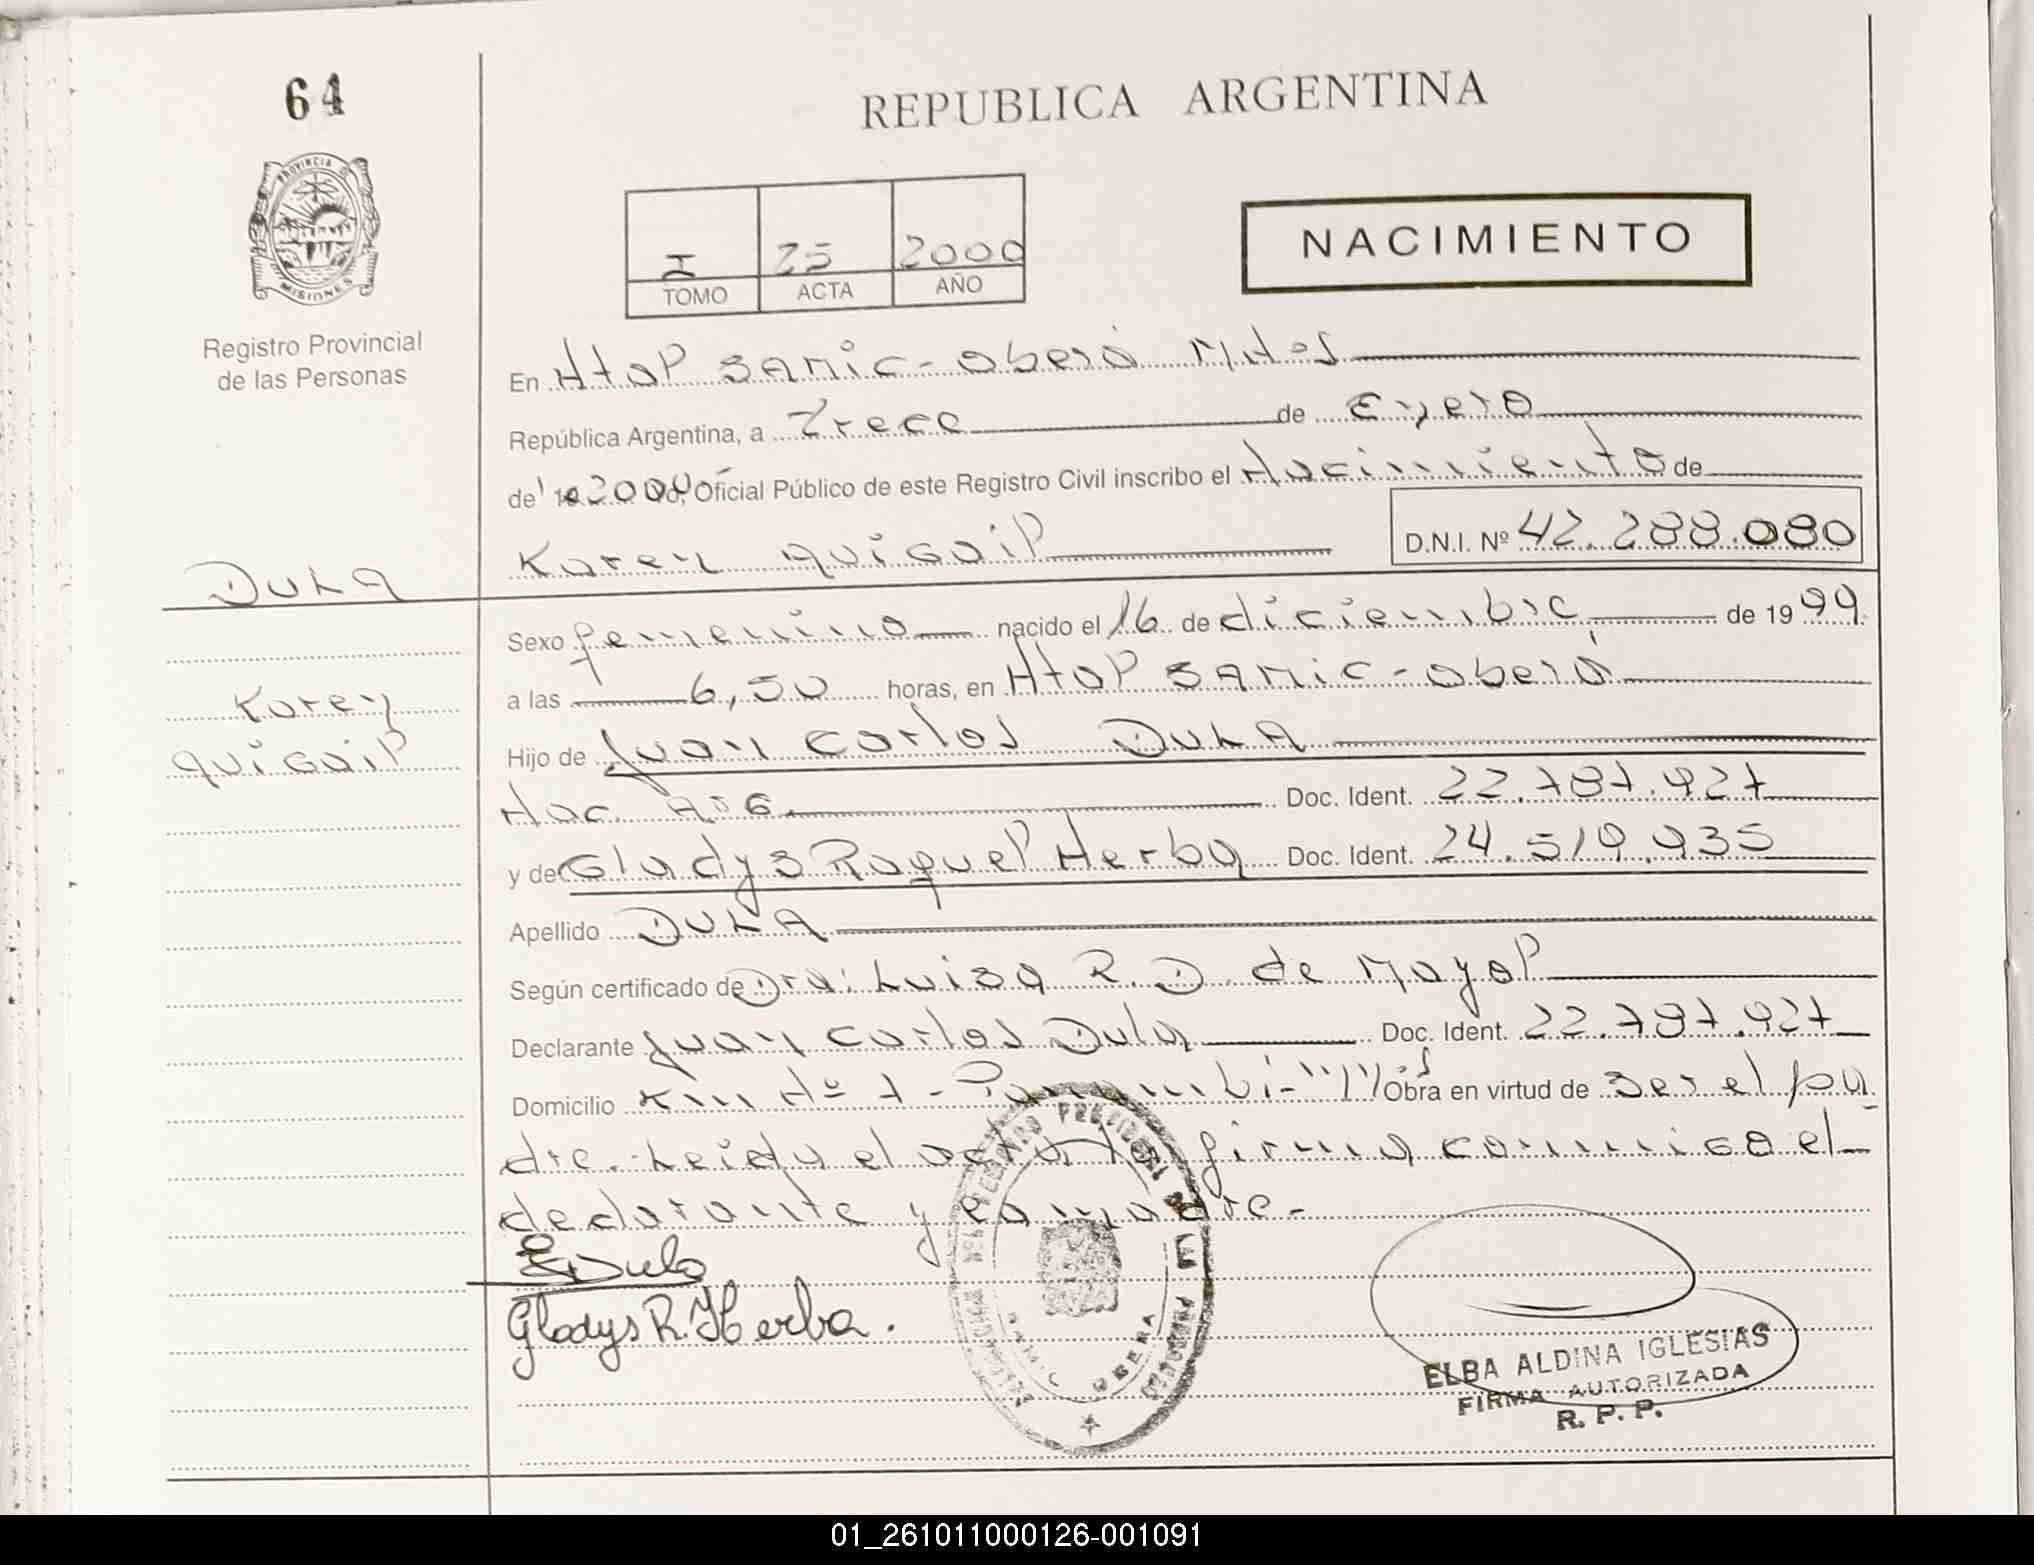 64
REPUBLICA ARGENTINA
PROVINCIA DE MISIONES
Registro Provincial
de las Personas
I 25 2000
TOMO ACTA AÑO
NACIMIENTO
En Htal SAMIC - Oberá Mnes
República Argentina, a Trece de Enero
de 2000, Oficial Público de este Registro Civil inscribo el Nacimiento de
Karen Avigail D.N.I. Nº 42.288.080
DULA
Karen
Avigail
Sexo femenino nacido el 16 de diciembre de 1999
a las 6,50 horas, en Htal SAMIC - Oberá
Hijo de Juan Carlos DULA
Nac. Arg. Doc. Ident. 22.787.927
y de Gladys Raquel Herba Doc. Ident. 24.519.935
Apellido DULA
Según certificado de Dra: Luisa R. D. de Mayol
Declarante Juan Carlos Dula Doc. Ident. 22.787.927
Domicilio Km Nº 7 - Panambi - Obra en virtud de ser el pa
dre. Leída el acta la firma conmigo el
declarante y la madre.-
Dula
Gladys R. Herba.
OBERA
ELBA ALDINA IGLESIAS
FIRMA AUTORIZADA
R. P. P.
01_261011000126-001091